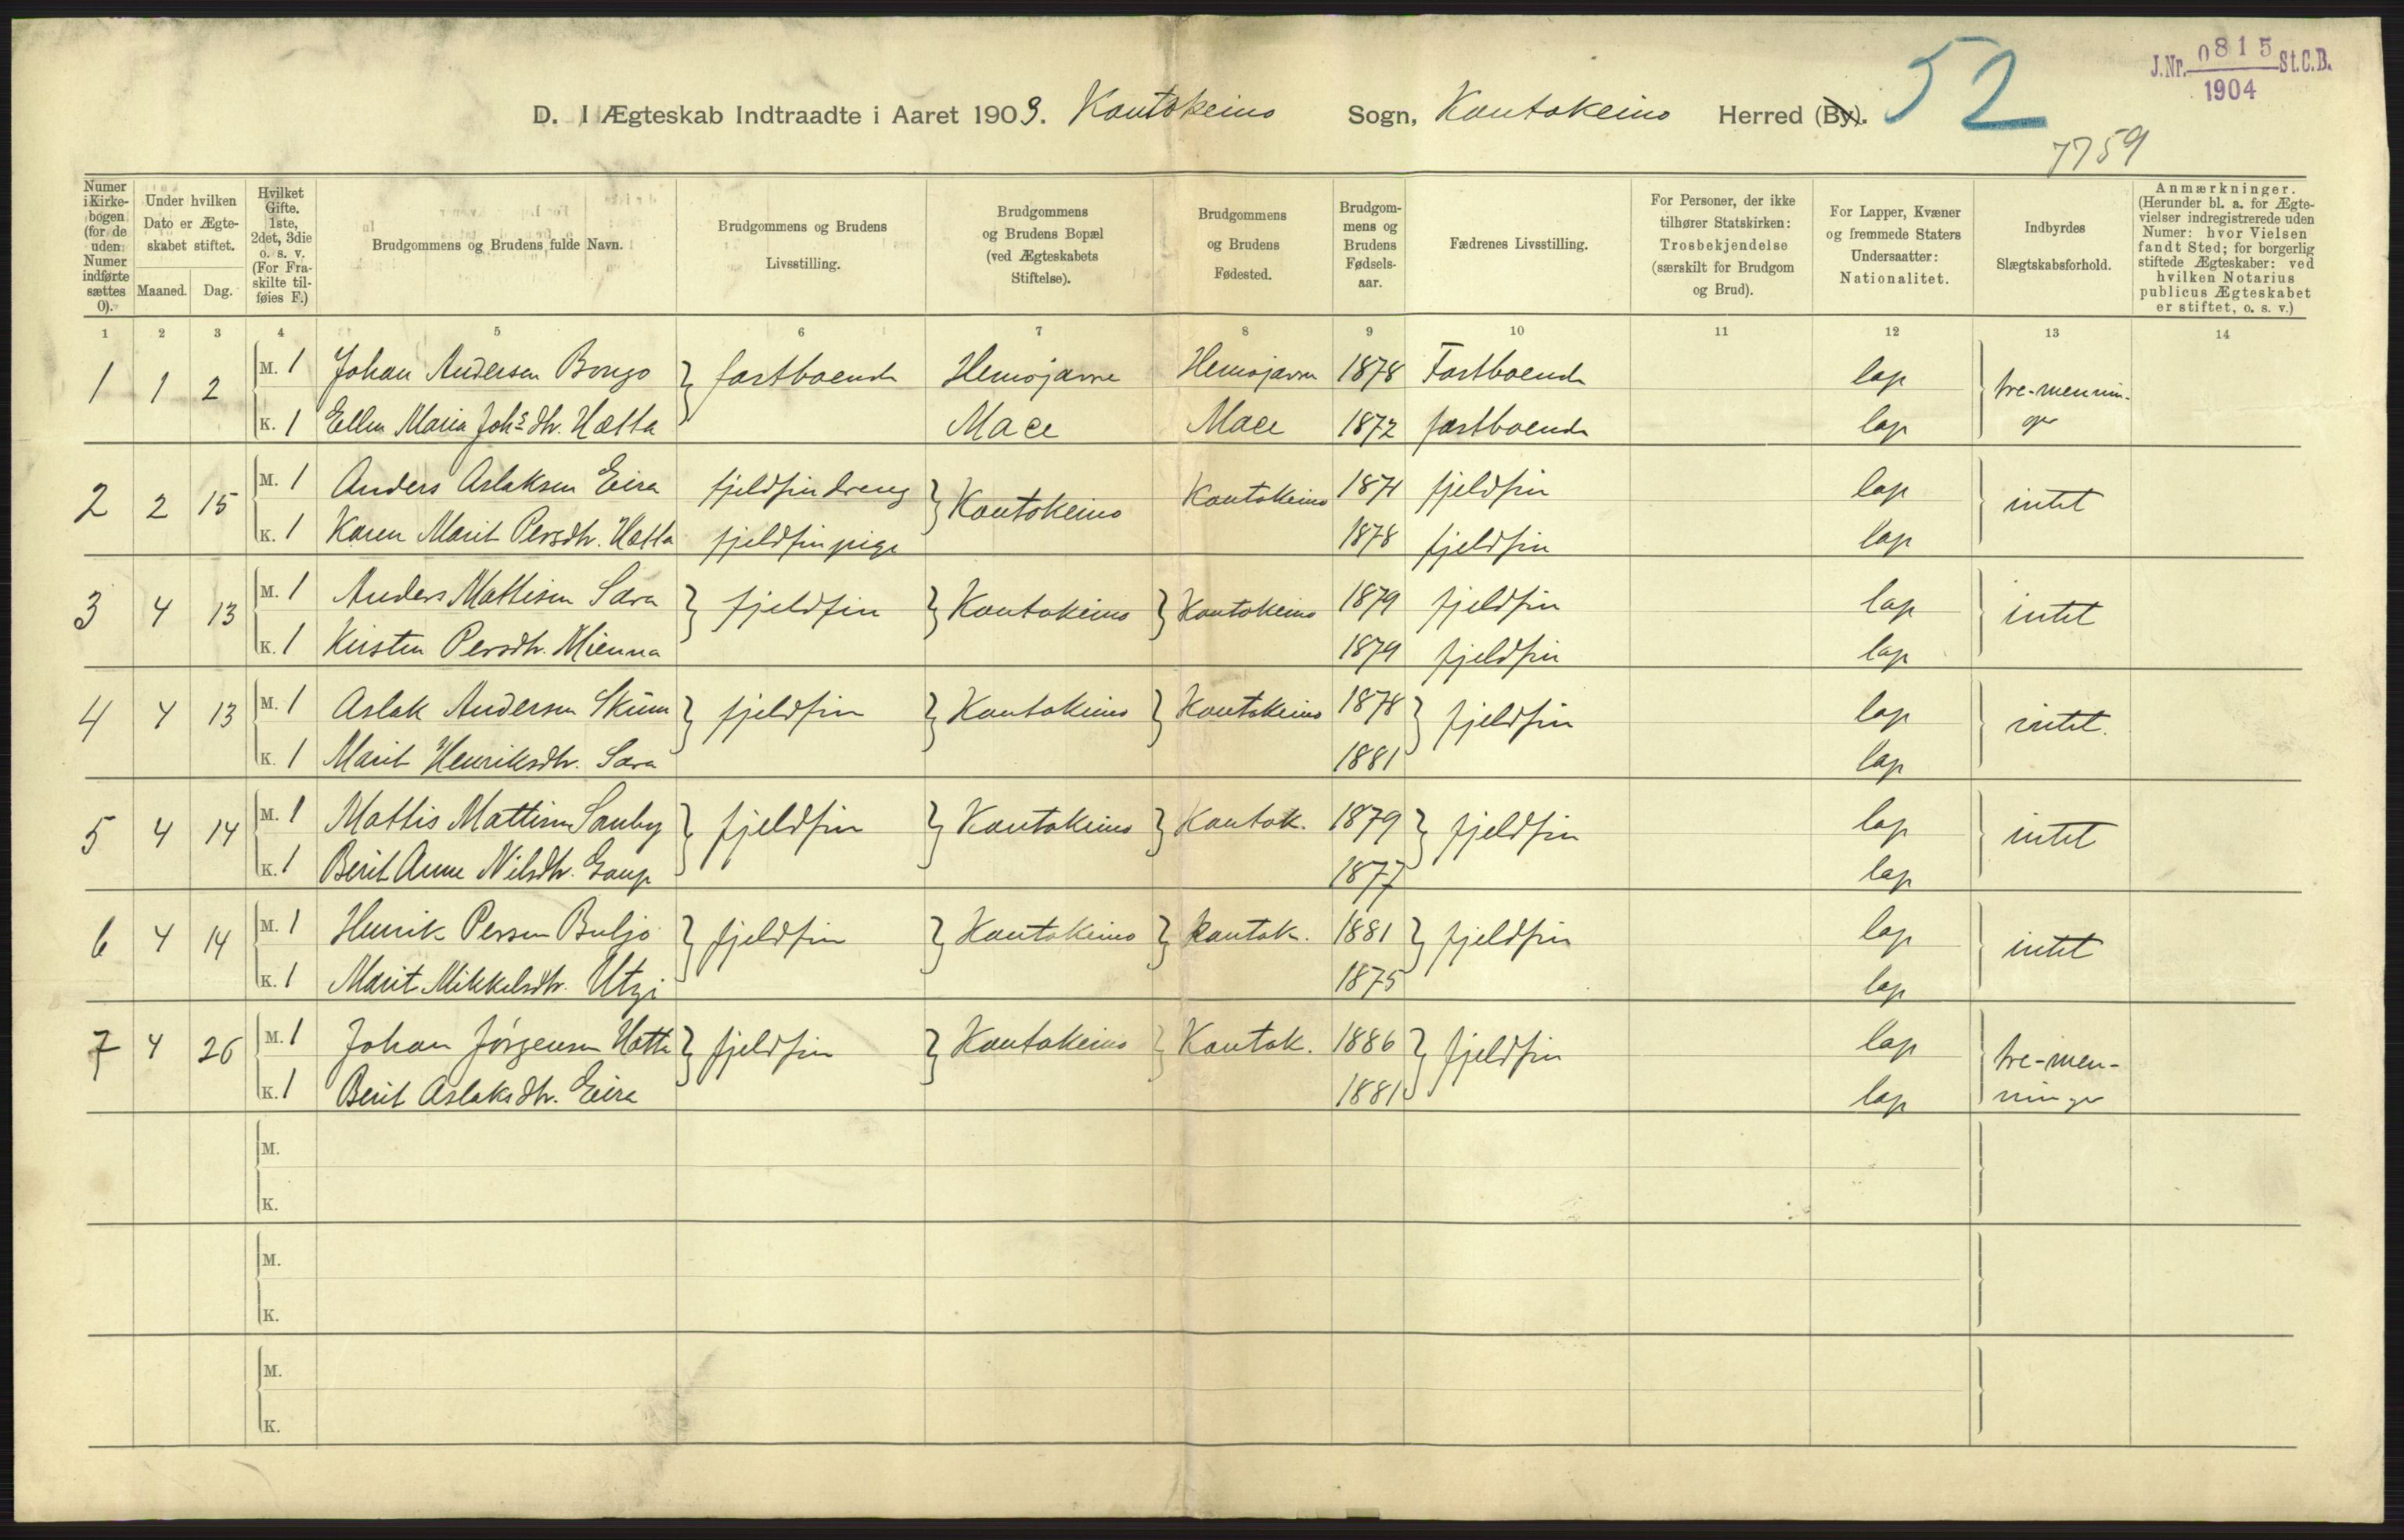 J.Nr. 0815 St.C.B.
1904
52
7759
D. I Ægteskab Indtraadte i Aaret 1903. Kautokeino Sogn, Kautokeino Herred (By).
Numer i Kirkebogen (for de uden Numer indførte sættes 0).
Under hvilken Dato er Ægteskabet stiftet.
Maaned. Dag.
Hvilket Gifte. 1ste, 2det, 3die o. s. v. (For Fraskilte tilføies F.)
Brudgommens og Brudens fulde Navn.
Brudgommens og Brudens Livsstilling.
Brudgommens og Brudens Bopæl (ved Ægteskabets Stiftelse).
Brudgommens og Brudens Fødested.
Brudgommens og Brudens Fødselsaar.
Fædrenes Livsstilling.
For Personer, der ikke tilhører Statskirken: Trosbekjendelse (særskilt for Brudgom og Brud).
For Lapper, Kvæner og fremmede Staters Undersaatter: Nationalitet.
Indbyrdes Slægtskabsforhold.
Anmærkninger. (Herunder bl. a. for Ægtevielser indregistrerede uden Numer: hvor Vielsen fandt Sted; for borgerlig stiftede Ægteskaber: ved hvilken Notarius publicus Ægteskabet er stiftet, o. s. v.)
1 2 3 4 5 6 7 8 9 10 11 12 13 14
1 1 2 M. 1 Johan Andersen Bongo fastboende 1878 Fastboende lap tre-mennin-
K. 1 Ellen Maria Johs dtr. Hætta Mace Mace 1872 fastboende lap ger
2 2 15 M. 1 Anders Aslaksen Eira fjeldfin dreng Kautokeino Kautokeino 1871 fjeldfin lap intet
K. 1 Karen Marit Persdtr. Hætta fjeldfin pige 1878 fjeldfin lap
3 4 13 M. 1 Anders Mattisen Sara fjeldfin Kautokeino Kautokeino 1879 fjeldfin lap intet
K. 1 Kirsten Persdtr. Mienna 1879 fjeldfin lap
4 4 13 M. 1 Aslak Andersen Skum fjeldfin Kautokeino Kautokeino 1878 fjeldfin lap intet.
K. 1 Marit Henriksdtr. Sara 1881 lap
5 4 14 M. 1 Mattis Mattisen fjeldfin Kautokeino Kautok. 1879 fjeldfin lap intet
K. 1 Berit Anne Nilsdtr. Gaup 1877 lap
6 4 14 M. 1 Henrik Persen Buljo fjeldfin Kautokeino Kautok. 1881 fjeldfin lap intet
K. 1 Marit Mikkelsdtr. Utzi 1875 lap
7 4 26 M. 1 Johan Jørgensen Hætta fjeldfin Kautokeino Kautok. 1886 fjeldfin lap tre-men-
K. 1 Berit Aslaksdtr. Eira 1881 lap ninger
M.
K.
M.
K.
M.
K.